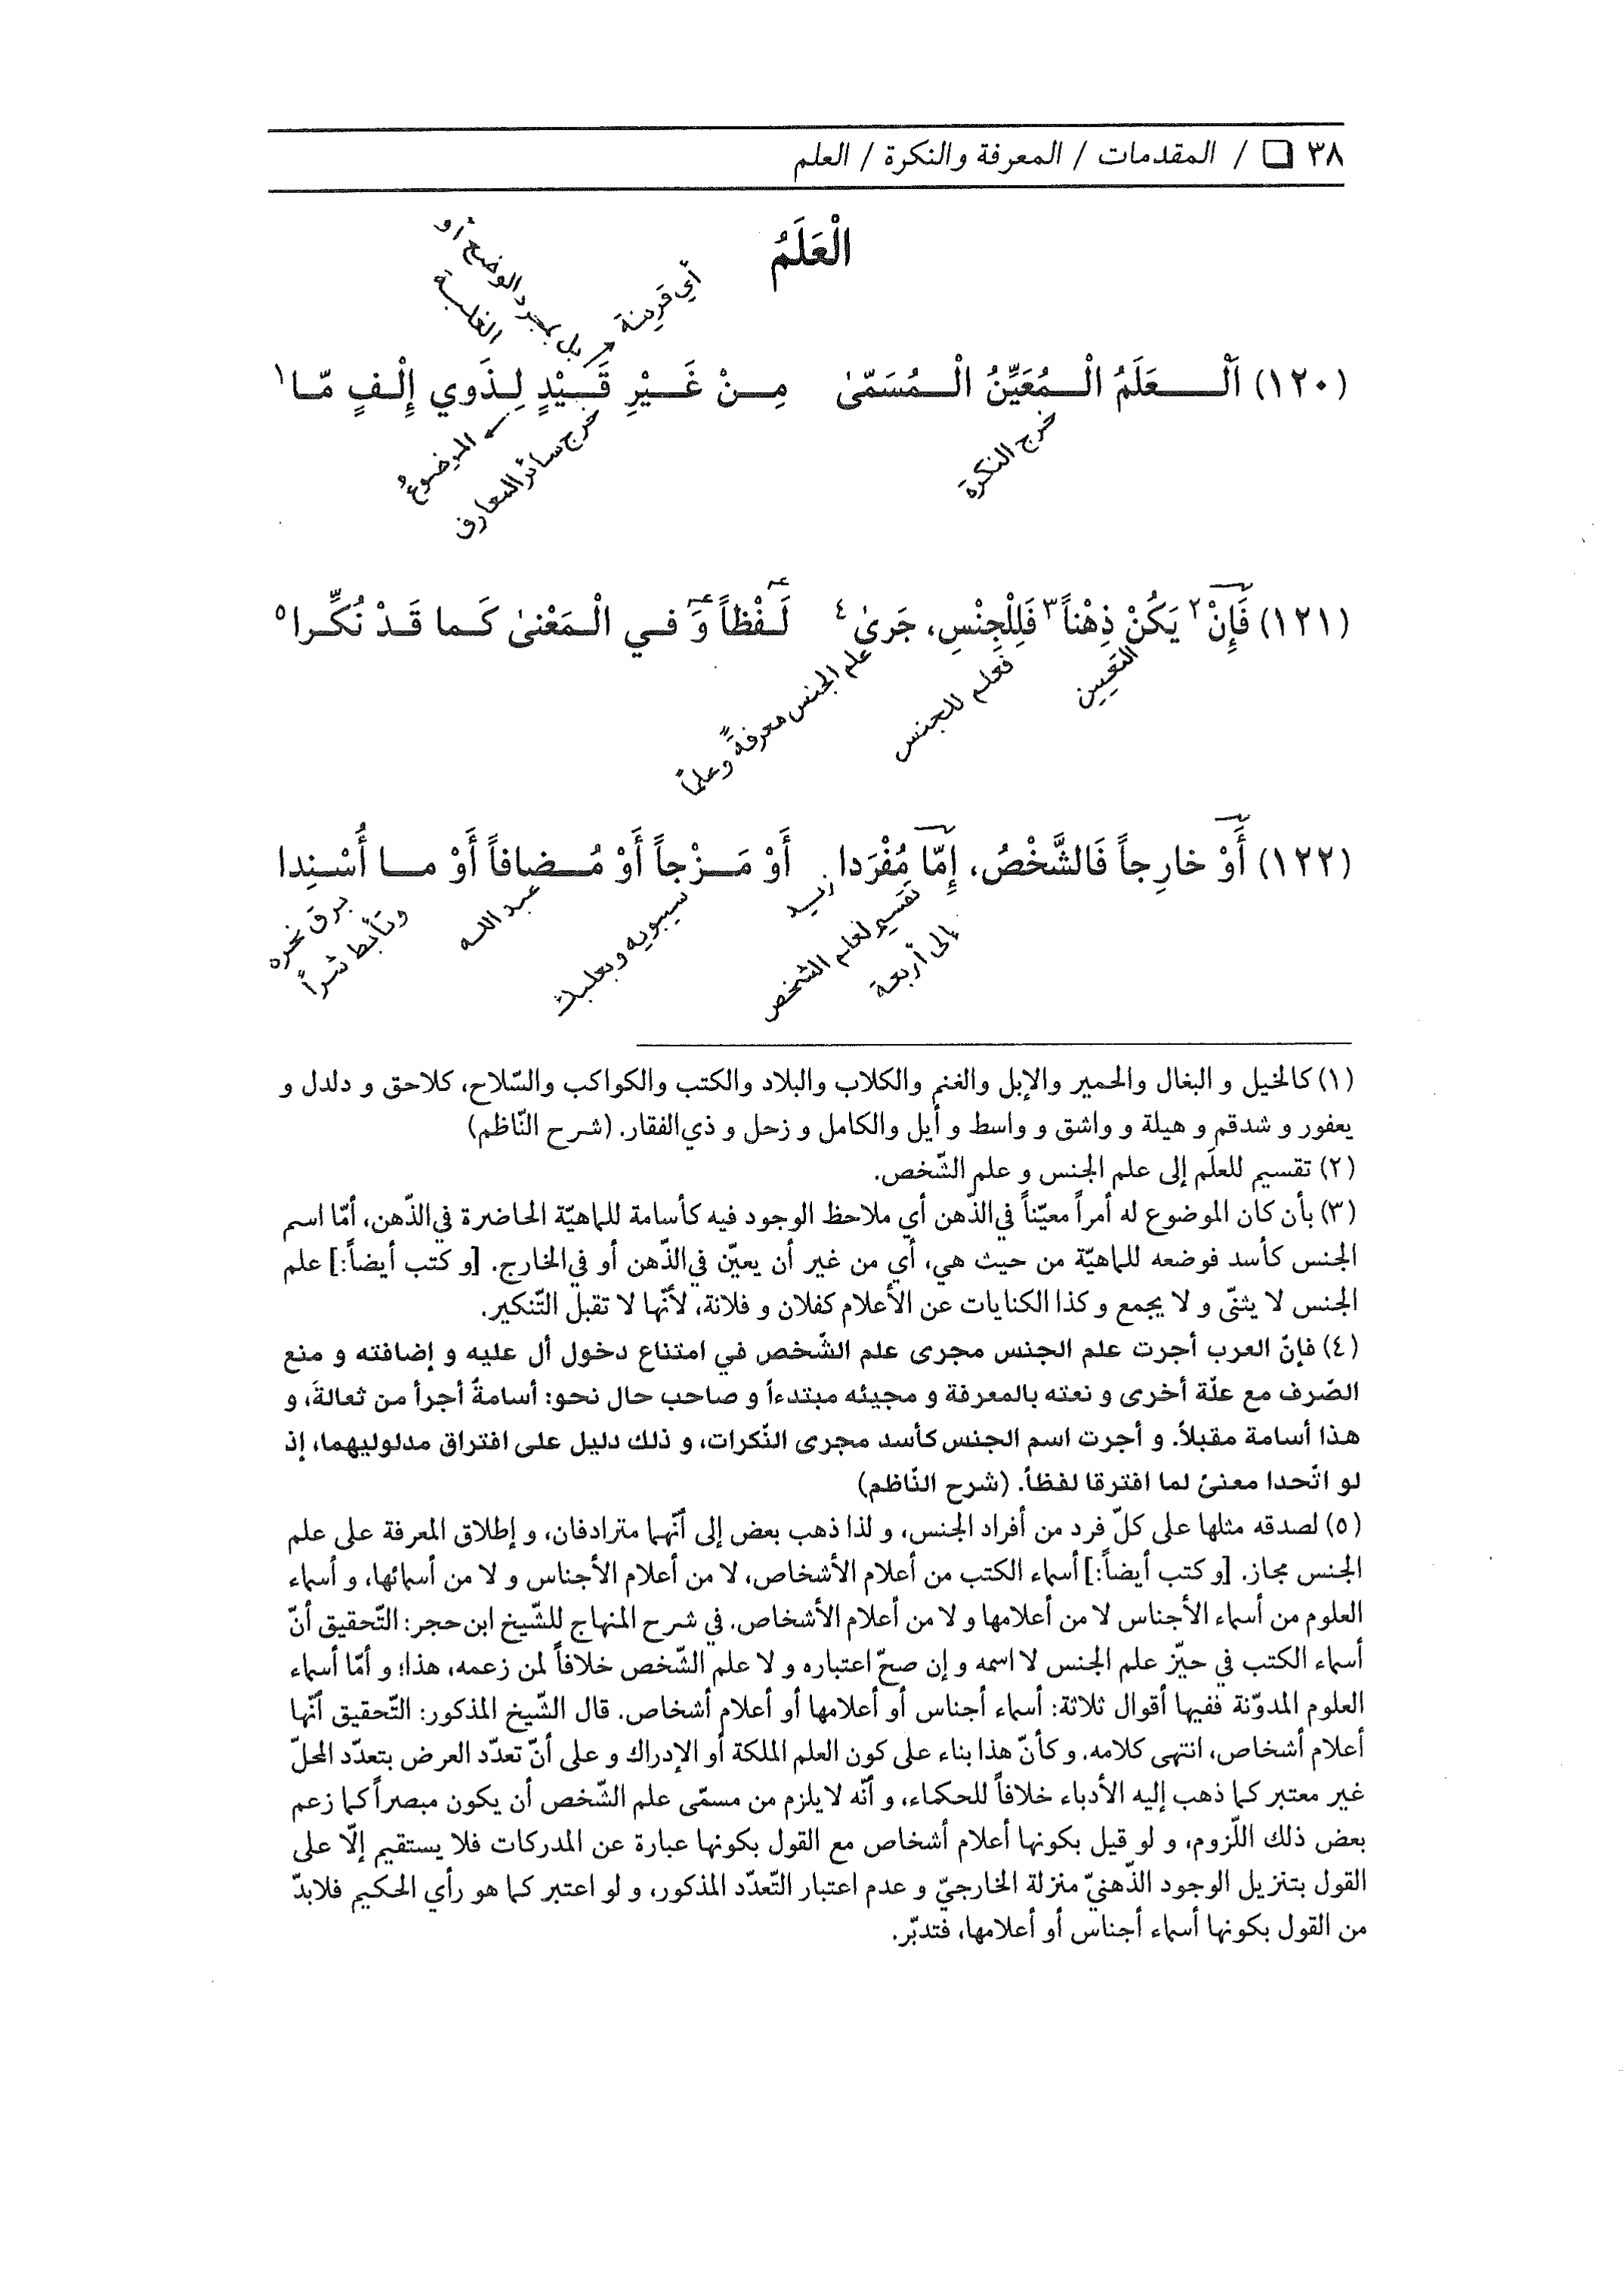 ٣٨ ❏ / المقدمات / المعرفة والنكرة / العلم
الْعَلَمُ
أي قرينة
بل بمجرد الوضع أو
الغلبة
(١٢٠) اَلْعَلَمُ الْمُعَيِّنُ الْمُسَمّىٰ مِنْ غَيْرِ قَيْدٍ لِذَوي إِلْفٍ مّا١
خرج النكرة
خرج سائر المعارف
الموضوعُ
(١٢١) فَإِنْ٢ يَكُنْ ذِهْناً٣ فَلِلْجِنْسِ، جَرىٰ٤ لَفْظاً وَ في الْمَعْنىٰ كَما قَدْ نُكِّرا٥
التعيين
فعلم للجنس
علم الجنس معرفةً وعلماً
(١٢٢) أَوْ خارِجاً فَالشَّخْصُ، إِمّا مُفْرَدا أَوْ مَزْجاً أَوْ مُضافاً أَوْ ما أُسْنِدا
تقسيم لعلم الشخص
إلى أربعة
زيد
سيبويه و بعلبك
عبد الله
برق نحره
وتأبط شراً
(١) كالخيل و البغال والحمير والإبل والغنم والكلاب والبلاد والكتب والكواكب والسّلاح، كلاحق و دلدل و
يعفور و شدقم و هيلة و واشق و واسط و أيل والكامل و زحل و ذي‌الفقار. (شرح النّاظم)
(٢) تقسيم للعلَم إلى علم الجنس و علم الشّخص.
(٣) بأن كان الموضوع له أمراً معيّناً في‌الذّهن أي ملاحظ الوجود فيه كأسامة للماهيّة الحاضرة في‌الذّهن، أمّا اسم
الجنس كأسد فوضعه للماهيّة من حيث هي، أي من غير أن يعيّن في‌الذّهن أو في‌الخارج. [و كتب أيضاً:] علم
الجنس لا يثنّى و لا يجمع و كذا الكنايات عن الأعلام كفلان و فلانة، لأنّها لا تقبل التّنكير.
(٤) فإنّ العرب أجرت علم الجنس مجرى علم الشّخص في امتناع دخول أل عليه و إضافته و منع
الصّرف مع علّة أخرى و نعته بالمعرفة و مجيئه مبتدءاً و صاحب حال نحو: أسامةُ أجرأ من ثعالةَ، و
هذا أسامة مقبلاً. و أجرت اسم الجنس كأسد مجرى النّكرات، و ذلك دليل على افتراق مدلوليهما، إذ
لو اتّحدا معنىً لما افترقا لفظاً. (شرح النّاظم)
(٥) لصدقه مثلها على كلّ فرد من أفراد الجنس، و لذا ذهب بعض إلى أنّهما مترادفان، و إطلاق المعرفة على علم
الجنس مجاز. [و كتب أيضاً:] أسماء الكتب من أعلام الأشخاص، لا من أعلام الأجناس و لا من أسمائها، و أسماء
العلوم من أسماء الأجناس لا من أعلامها و لا من أعلام الأشخاص. في شرح المنهاج للشّيخ ابن حجر: التّحقيق أنّ
أسماء الكتب في حيّز علم الجنس لا اسمه و إن صحّ اعتباره و لا علم الشّخص خلافاً لمن زعمه، هذا؛ و أمّا أسماء
العلوم المدوّنة ففيها أقوال ثلاثة: أسماء أجناس أو أعلامها أو أعلام أشخاص. قال الشّيخ المذكور: التّحقيق أنّها
أعلام أشخاص، انتهى كلامه. و كأنّ هذا بناء على كون العلم الملكة أو الإدراك و على أنّ تعدّد العرض بتعدّد المحلّ
غير معتبر كما ذهب إليه الأدباء خلافاً للحكماء، و أنّه لا يلزم من مسمّى علم الشّخص أن يكون مبصراً كما زعم
بعض ذلك اللّزوم، و لو قيل بكونها أعلام أشخاص مع القول بكونها عبارة عن المدركات فلا يستقيم إلّا على
القول بتنزيل الوجود الذّهنيّ منزلة الخارجيّ و عدم اعتبار التّعدّد المذكور، و لو اعتبر كما هو رأي الحكيم فلابدّ
من القول بكونها أسماء أجناس أو أعلامها، فتدبّر.